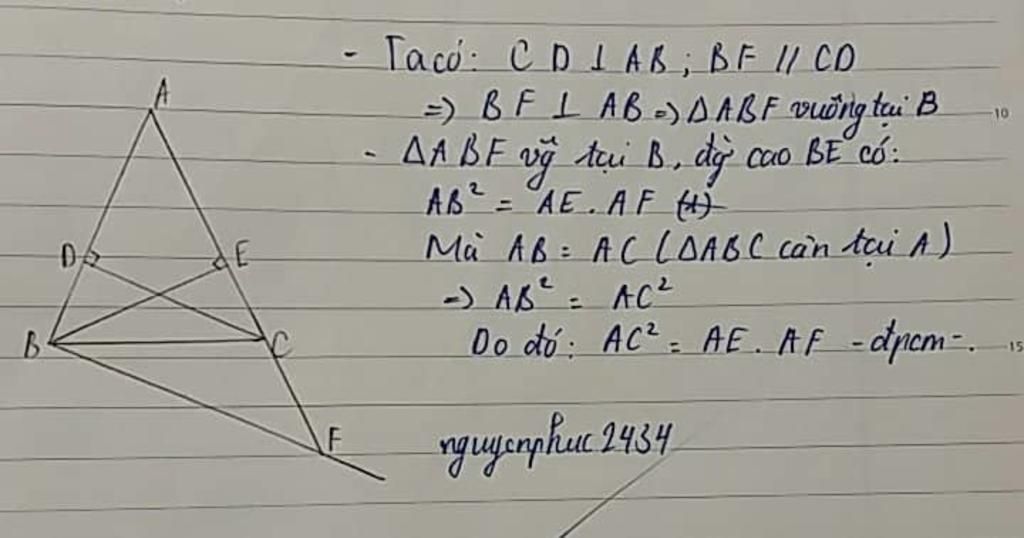 A
D
E
B
C
F
- Ta có: CD ⊥ AB ; BF // CD
=> BF ⊥ AB => ΔABF vuông tại B
10
- ΔABF vg̃ tại B, đg̀ cao BE có:
AB² = AE . AF
Mà AB = AC (ΔABC cân tại A)
=> AB² = AC²
Do đó: AC² = AE . AF -đpcm-.
15
nguyenphuc2434